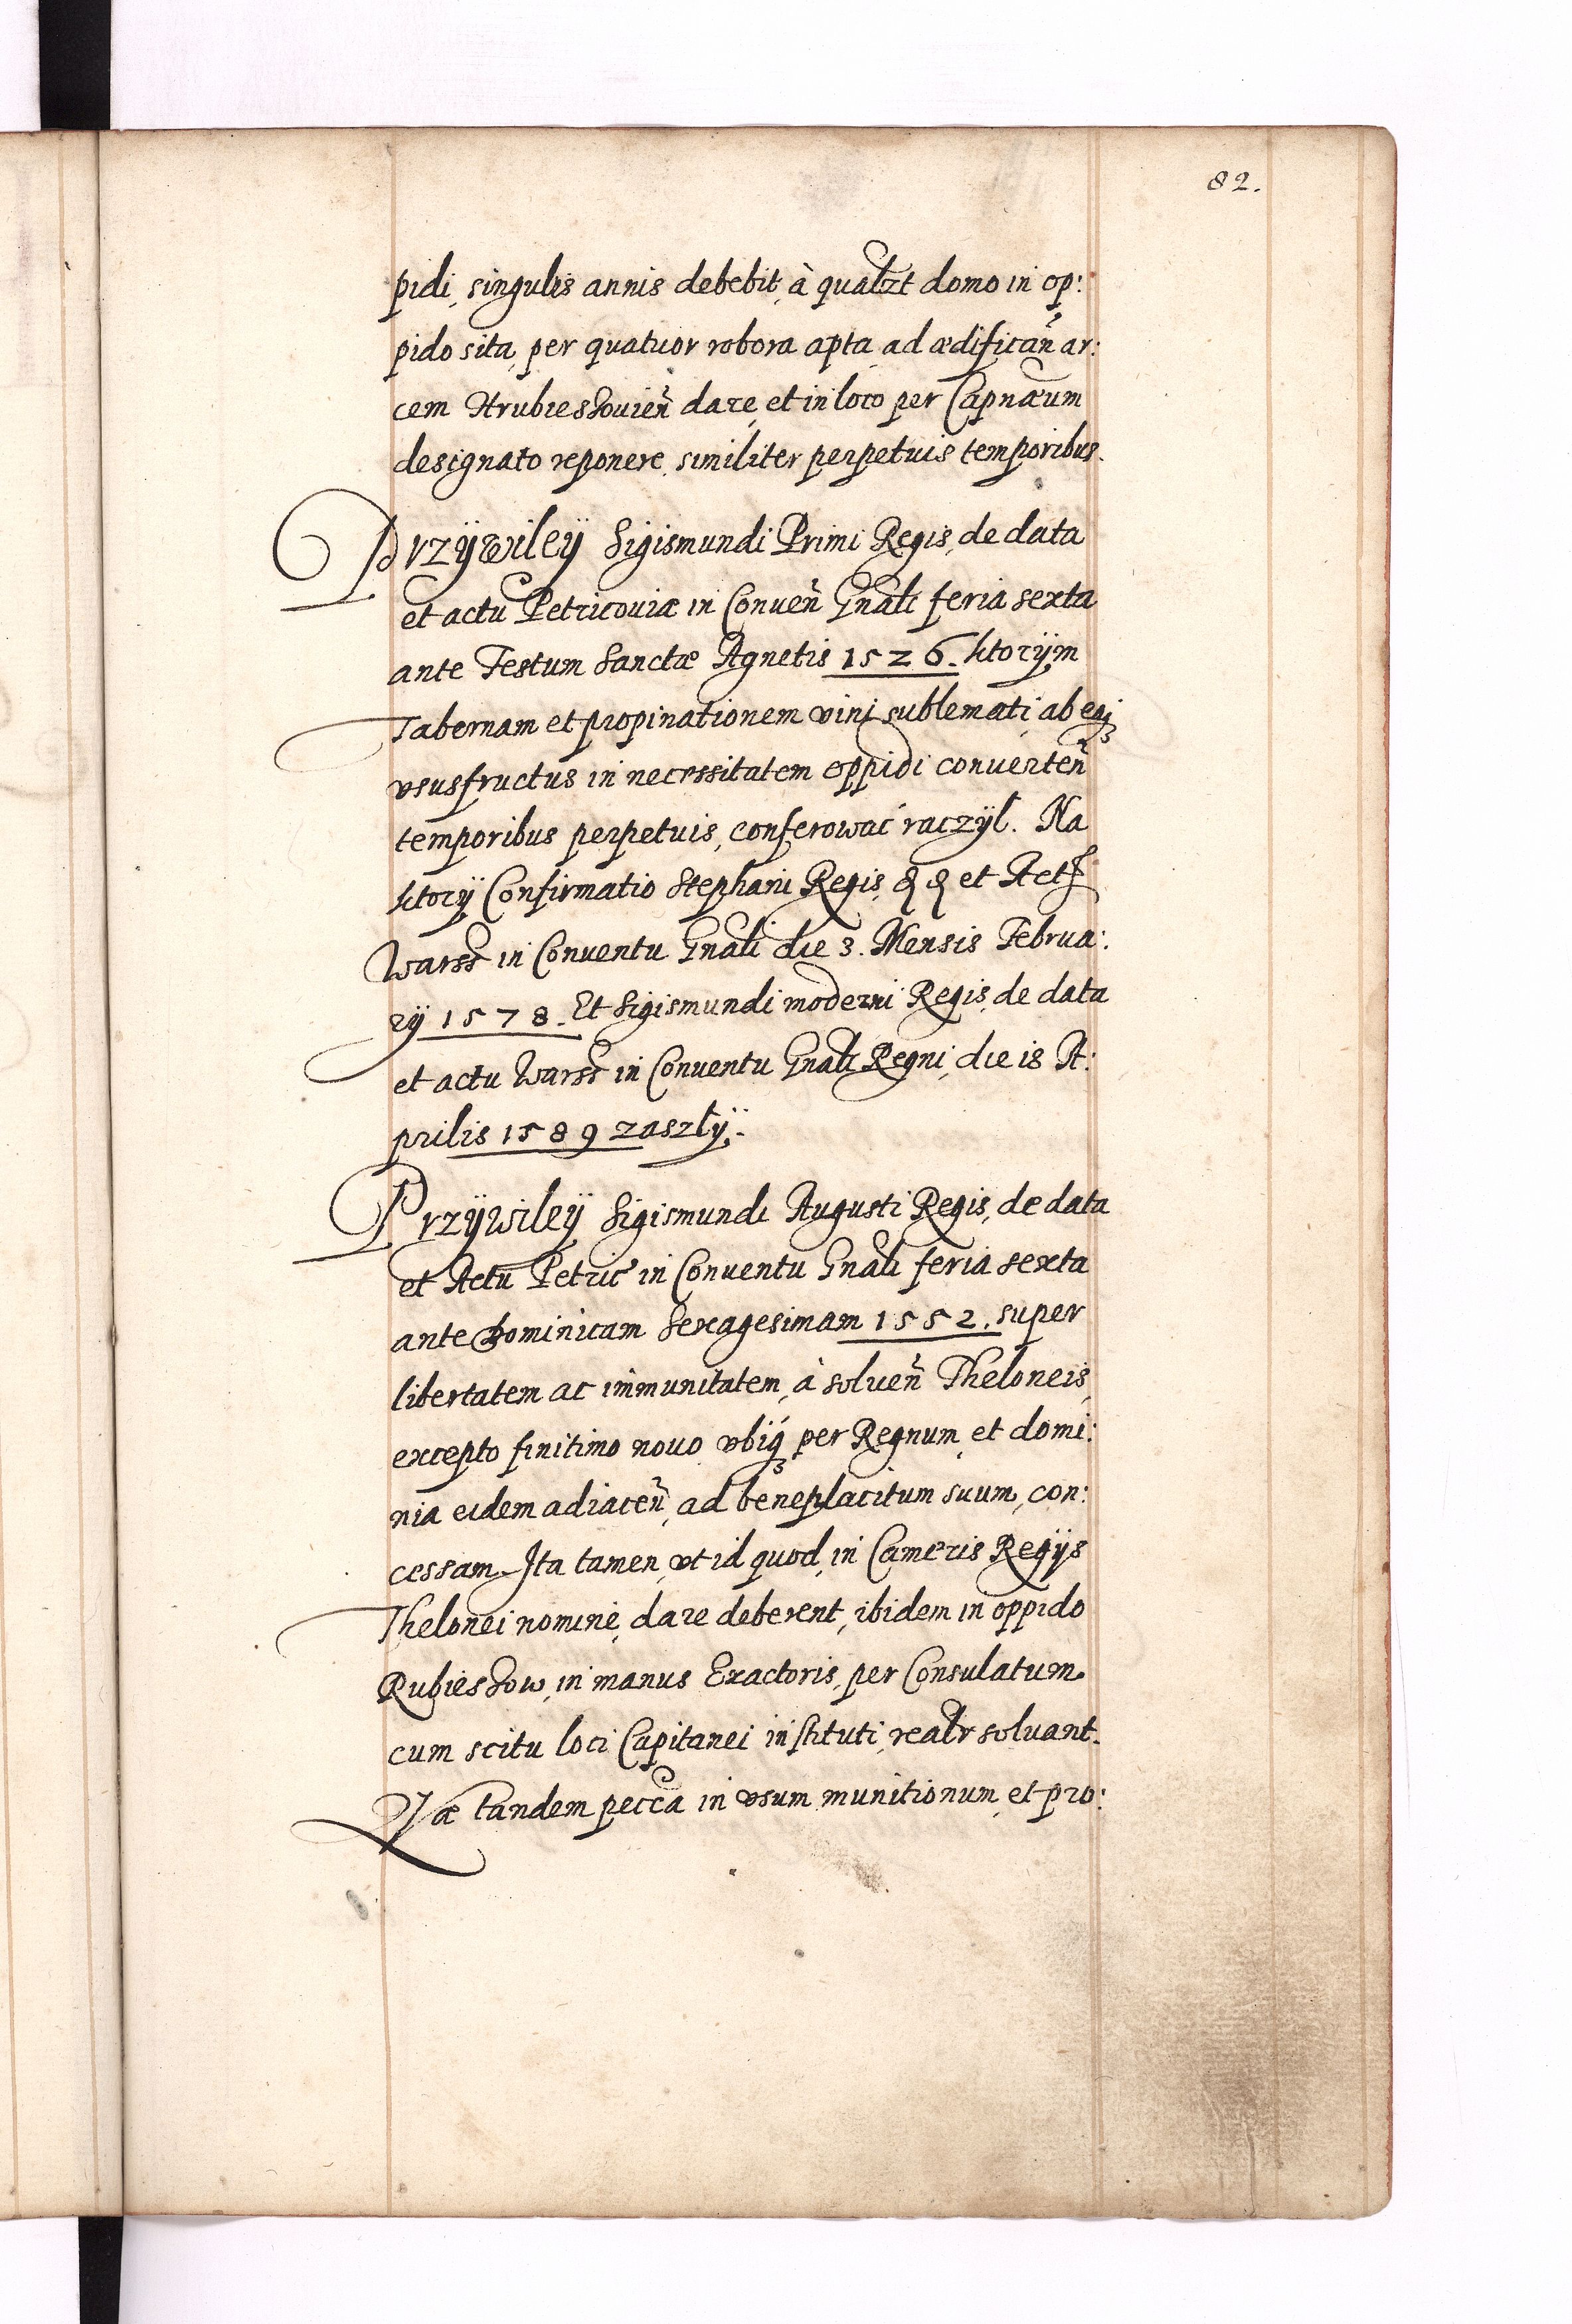 82.
pidi, singulis annis debebit, à qualzt domo in op:
pido sita, per quatuor robora apta, ad ædificañ ar:
cem Hrubieshouieñ dare, et in loco per Capnæum
designato reponere, similiter perpetuis temporibus.
Przÿwileÿ Sigismundi Primi Regis, de data
et actu Petricouiæ in Conueñ Gnali feria sexta
ante Festum Sanctæ Agnetis 1526. ktorÿm
Tabernam et propinationem vini sublemati, ab eaq3
vsusfructus in necessitatem oppidi conuerteñ
temporibus perpetuis, conferować raczÿl. Na
ktorÿ Confirmatio Stephani Regis, et Act
Warss in Conuentu Gnali die 3. Mensis Februa:
rÿ 1578. Et Sigismundi moderni Regis, de data
et actu Warss in Conuentu Gnali Regni, die is A:
prilis 1589 zaszłÿ.
Przÿwileÿ Sigismundi Augusti Regis, de data
et Actu Petric in Conuentu Gnali feria sexta
ante Dominicam Sexagesimam 1552. super
libertatem ac immunitatem, à solueñ Theloneis,
excepto finitimo nouo, vbiq3 per Regnum, et domi:
nia eidem adiaceñ, ad beneplacitum suum, con:
cessam. Ita tamen, vt id quod, in Cameris Regÿs
Thelonei nomine, dare deberent, ibidem in oppido
Rubieshow, in manus Exactoris, per Consulatum
cum scitu loci Capitanei instituti, realr soluant.
Quæ tandem pecca in vsum munitionum, et pro: